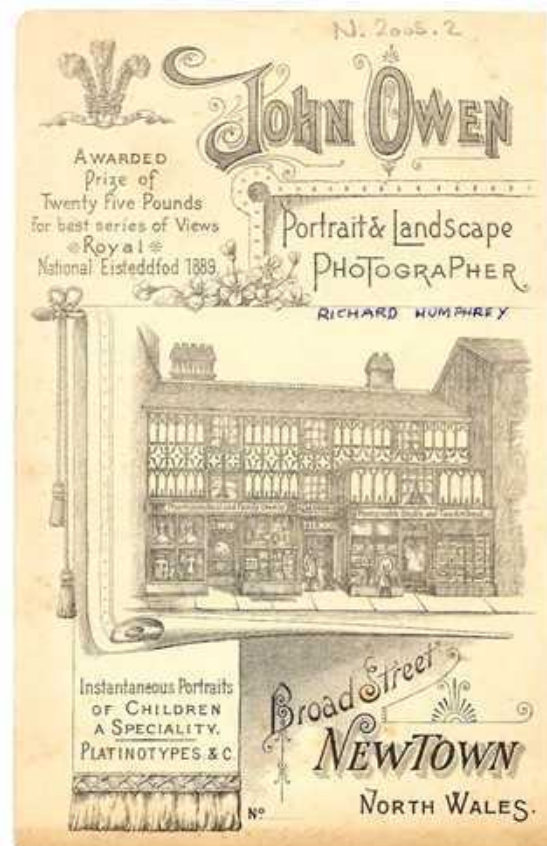 N. 2005.2
JOHN OWEN
AWARDED
Prize of
Twenty Five Pounds
for best series of Views
Royal
National Eisteddfod 1889
Portrait & Landscape
PHOTOGRAPHER
RICHARD HUMPHREY
Instantaneous Portraits
OF CHILDREN
A SPECIALITY.
PLATINOTYPES & C.
Broad Street
NEWTOWN
Nº
NORTH WALES.